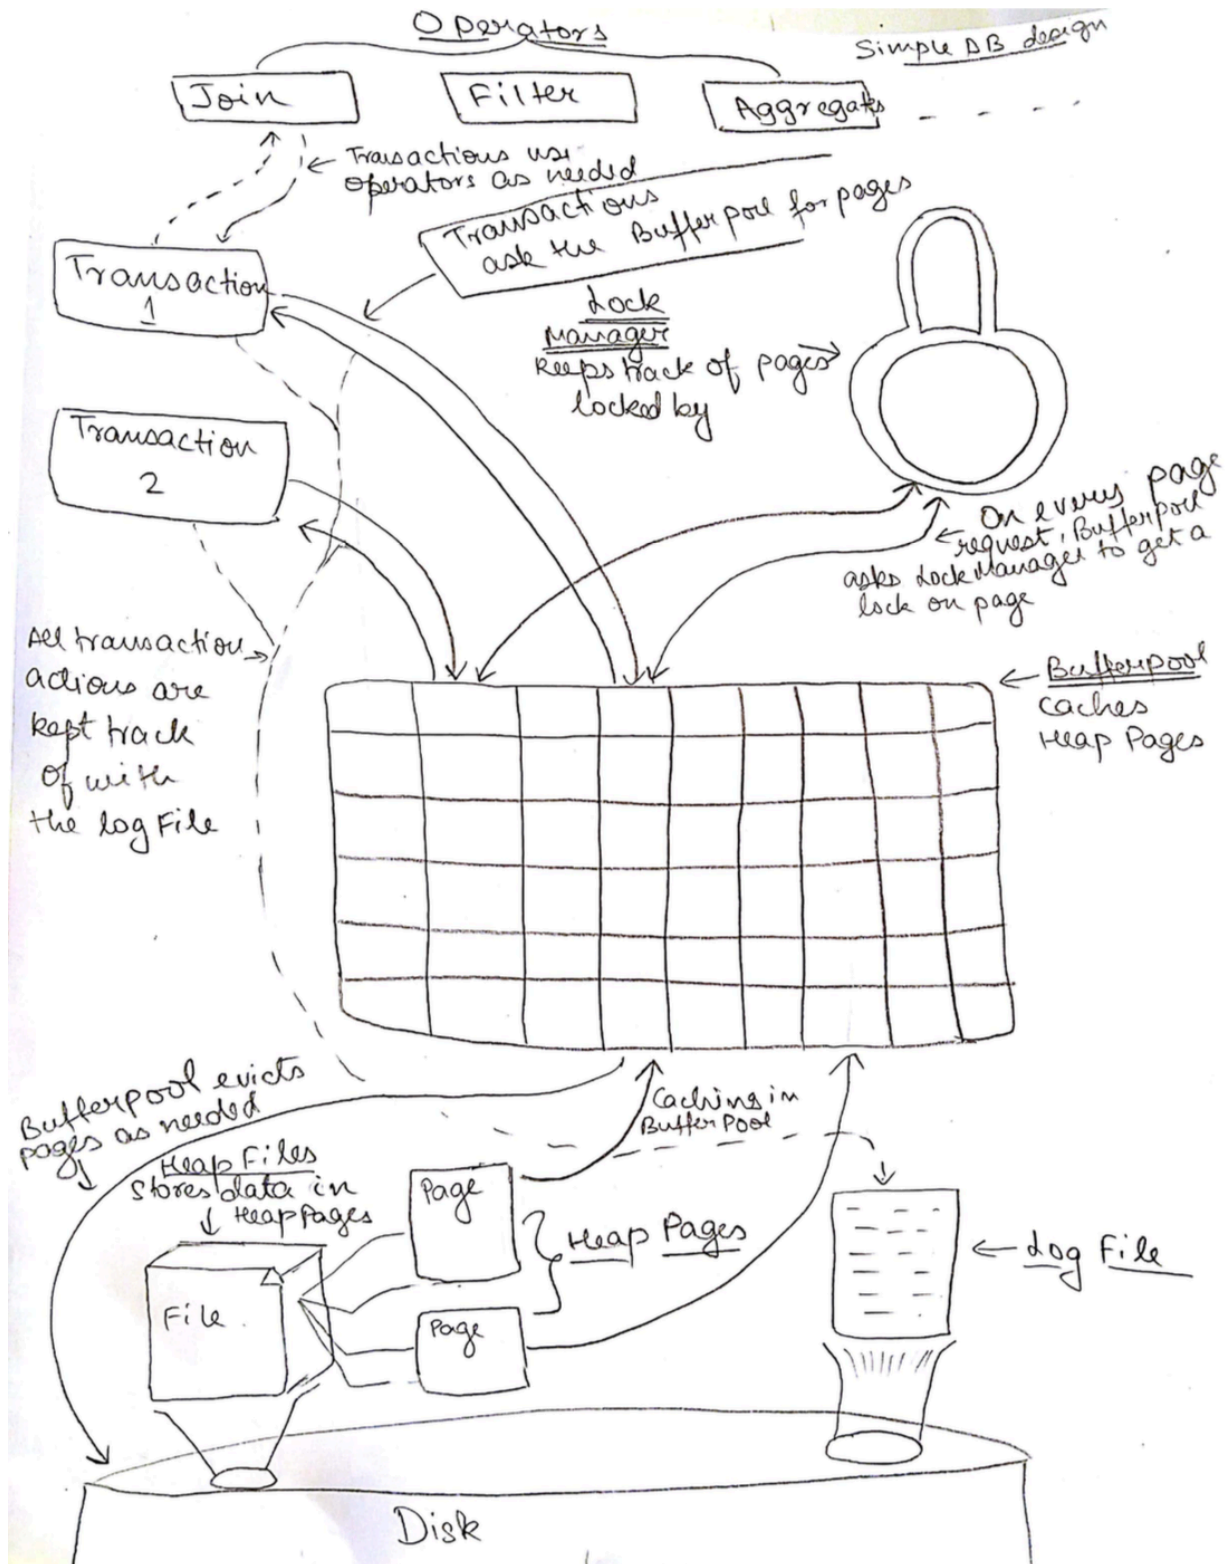 Operators
Simple DB design
Join
Filter
Aggregates
Transactions use
operators as needed
Transactions
ask the Bufferpool for pages
Transaction
1
Lock
Manager
Keeps track of pages
locked by
Transaction
2
On every page
request, Bufferpool
asks Lock Manager to get a
lock on page
All transaction
actions are
kept track
of with
the log File
Bufferpool
caches
Heap Pages
Bufferpool evicts
pages as needed
Caching in
Buffer Pool
Heap Files
Stores data in
Heap Pages
Page
Heap Pages
Log File
File
Page
Disk